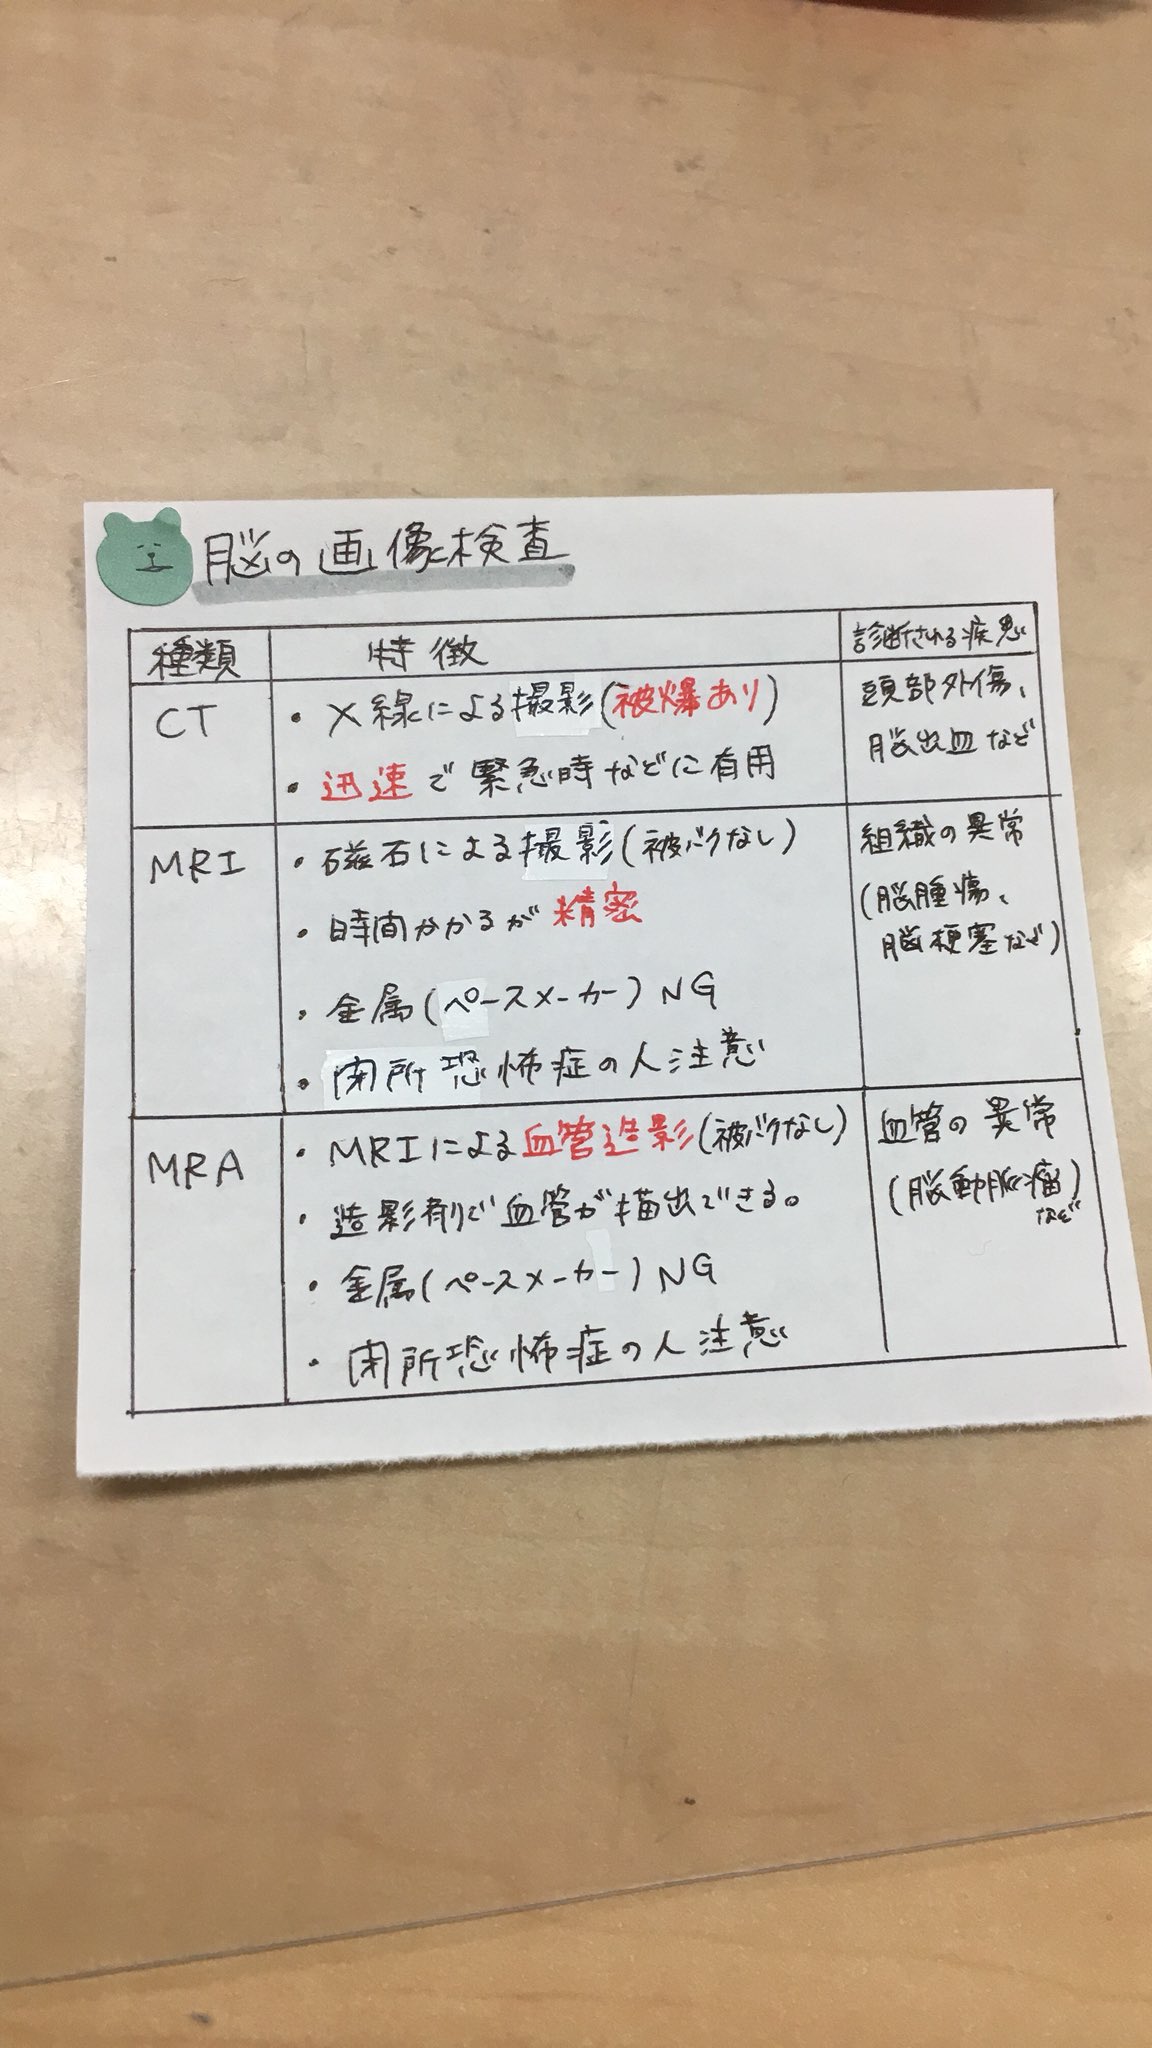 脳の画像検査
種類 特徴 診断される疾患
CT
・X線による撮影(被爆あり)
・迅速で緊急時などに有用
頭部外傷、
脳出血など
MRI
・磁石による撮影(被バクなし)
・時間かかるが精密
・金属(ペースメーカー)NG
・閉所恐怖症の人注意
組織の異常
(脳腫瘍、
脳梗塞など)
MRA
・MRIによる血管造影(被バクなし)
・造影剤で血管が描出できる。
・金属(ペースメーカー)NG
・閉所恐怖症の人注意
血管の異常
(脳動脈瘤)
など